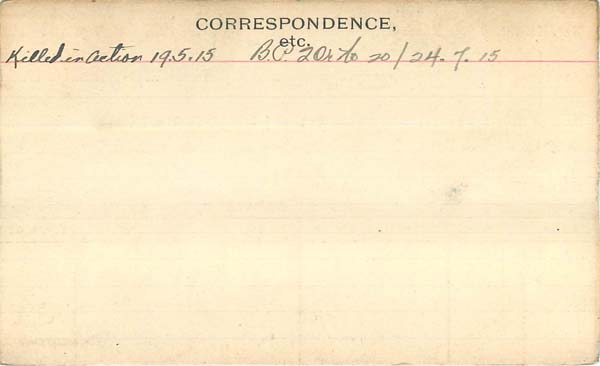 CORRESPONDENCE,
etc.
Killed in action 19.5.15 20/24.7.15